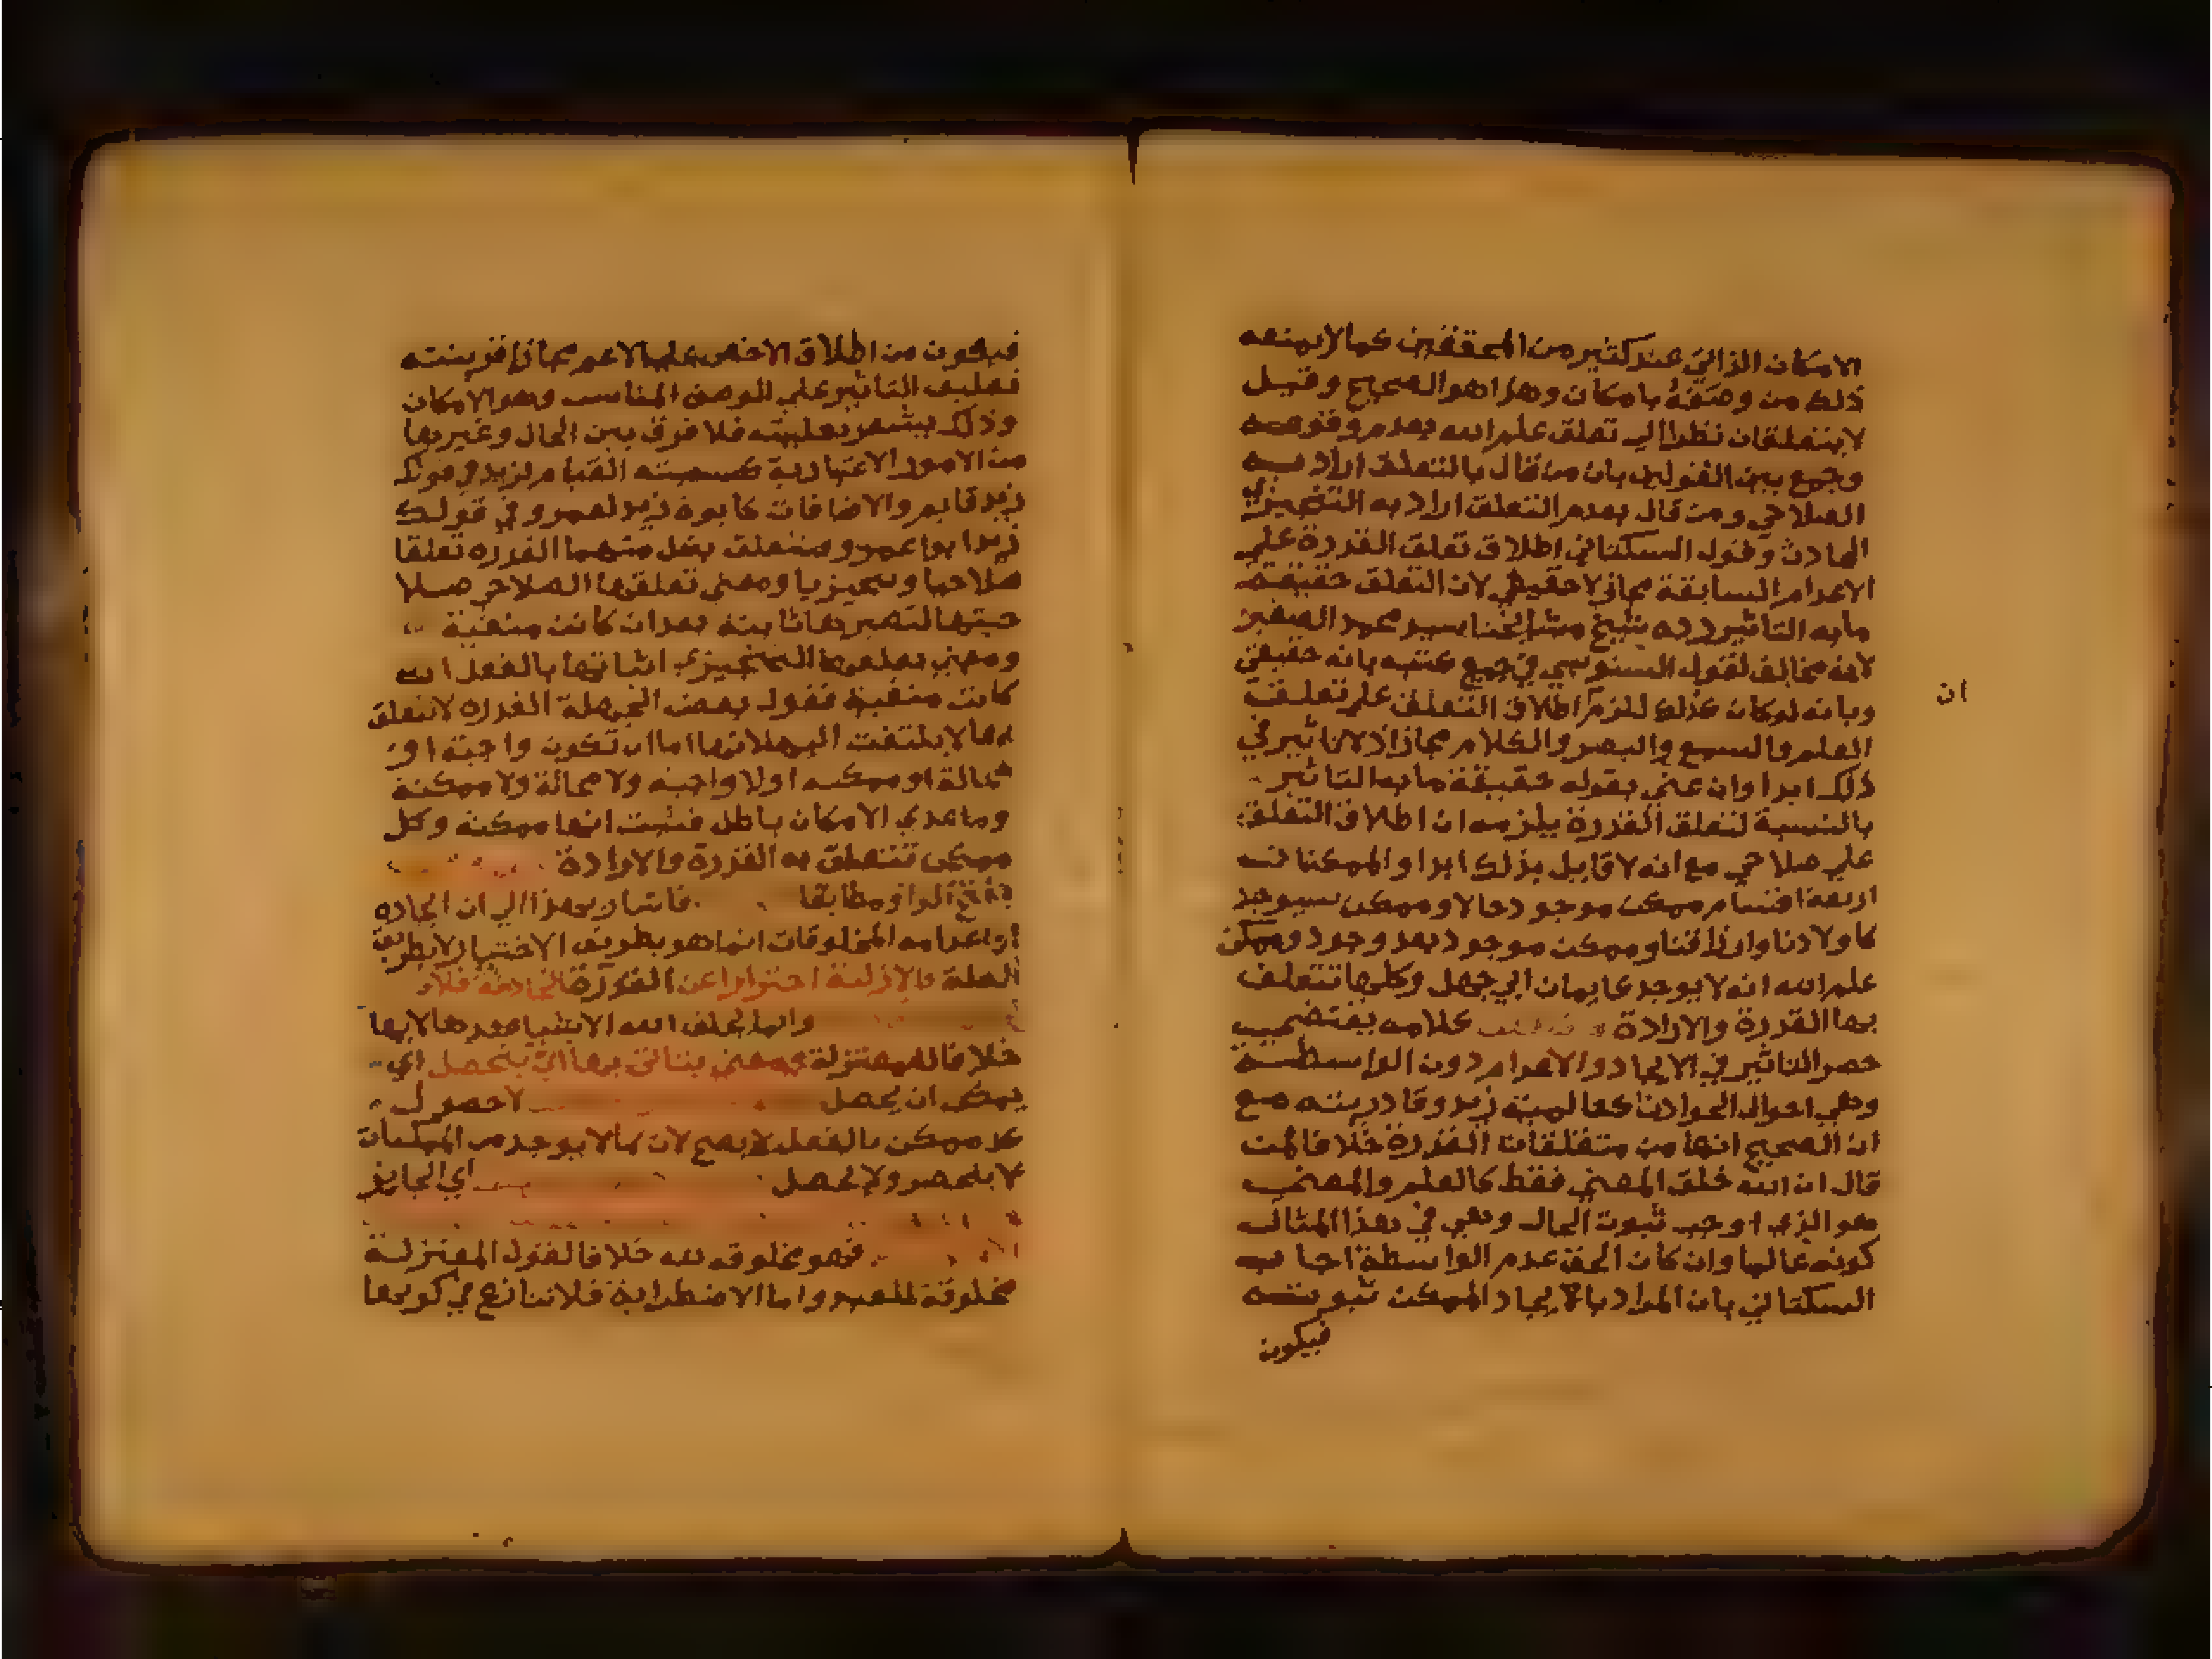 الامكان الذاتي عند كثير من المحققين كما لا يمنعه
ذلك من وصفه بامكان وهذا هو الصحيح وقيل
لا يتعلقان نظرا الي تعلق علم الله بعدم وقوعه
وجمع بين القولين بان من قال بالتعلق اراد به
الصلاحي ومن قال بعدم التعلق اراد به التنجيزي
الحادث وقول السكتاني اطلاق تعلق القدرة علي
الاعدام السابقة مجاز لا حقيقي لان التعلق حقيقة
ما به التاثير رده شيخ مشايخنا سيد محمد الصغير
لانه مخالف لقول السنوسي في جميع كتبه بانه حقيقي
وبانه لو كان كذلك للزم اطلاق التعلق علي تعلق
ان
العلم والسمع والبصر والكلام مجازا اذ لا تاثير في
ذلك ابدا وان عني بقوله حقيقة ما به التاثير
بالنسبة لتعلق القدرة يلزمه ان اطلاق التعلق
علي صلاحي مع انه لا قايل بذلك ابدا والممكنات
اربعة اقسام ممكن موجود حالا وممكن سيوجد
كاولادنا وارزاقنا وممكن موجود بعد وجود وممكن
علم الله انه لا يوجد كايمان ابي جهل وكلها تتعلق
بها القدرة والارادة كلامه يقتضي
حصر التاثير في الايجاد والاعدام دون الواسطة
وهي احوال الحوادث كعالمية زيد وقادريته مع
ان الصحيح انها من متعلقات القدرة خلافا لمن
قال ان الله خلق المعني فقط كالعلم والمعني
هو الذي اوجب ثبوت الحال وهي في هذا المثال
كونه عالما وان كان الحق عدم الواسطة اجاب
السكتاني بان المراد بالايجاد الممكن ثبوته
فيكون
فيكون من اطلاق الاخص علي الاعم مجازا قرينته
تعليق التاثير علي الوصف المناسب وهو الامكان
وذلك يشعر بعليته فلا فرق بين الحال وغيرها
من الامور الاعتبارية كنسبته القيام لزيد في قولك
زيد قايم والاضافات كابوة زيد لعمرو في قولك
زيد ابو عمرو متعلق بكل منهما القدرة تعلقا
صلاحيا وتنجيزيا ومعني تعلقها الصلاحي صلا
حيتها لتصيرها ثابتة بعد ان كانت منفية
ومعني تعلقها التنجيزي اثباتها بالفعل ان
كانت منفية فقول بعض الجهلة القدرة لا تتعلق
بها لا يلتفت اليه لانها اما ان تكون واجبة او
محالة او ممكنه او لا واجبه ولا محالة ولا ممكنة
وما عدي الامكان باطل فثبت انها ممكنة وكل
ممكن تتعلق به القدرة والارادة
بفتح الواو مطابقا فاشار بهذا الي ان ايجاده
او اعدامه المخلوقات انما هو بطريق الاختيار لا بطريق
العلة بالازلية احترازا عن القدرة الحادثة فلا
وانما يخلق الله الاشيا عندها لا بها
خلافا للمعتزلة ومعني يتاتي بها اي يتحصل اي
يمكن ان يحصل لا حصول
كل ممكن بالفعل لا يصح لان ما لا يوجد من الممكنات
لا ينحصر ولا يحصل اي الجايز
فهو مخلوقه لله خلافا لقول المعتزلة
مخلوقة للعبد واما الاضطرابية فلا نتنازع في كونها